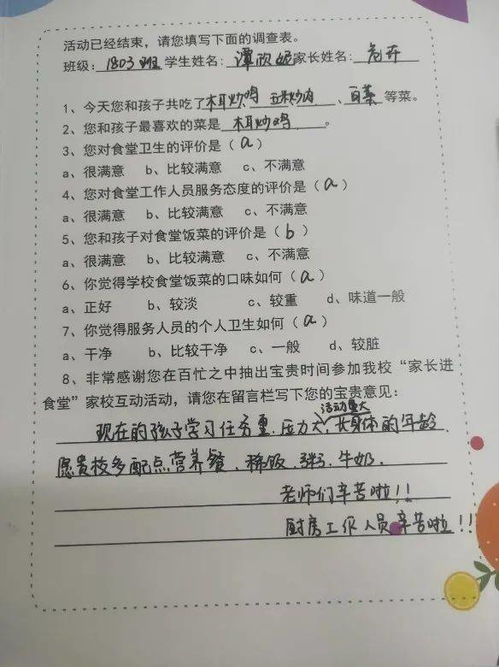 活动已经结束，请您填写下面的调查表。
班级：1803班 学生姓名：谭欣妮 家长姓名：危卉
1、今天您和孩子共吃了木耳炒鸡 玉米炒肉 、白菜 等菜。
2、您和孩子最喜欢的菜是 木耳炒鸡 。
3、您对食堂卫生的评价是（a）
a、很满意 b、比较满意 c、不满意
4、您对食堂工作人员服务态度的评价是（a）
a、很满意 b、比较满意 c、不满意
5、您和孩子对食堂饭菜的评价是（b）
a、很满意 b、比较满意 c、不满意
6、你觉得学校食堂饭菜的口味如何（a）
a、正好 b、较淡 c、较重 d、味道一般
7、你觉得服务人员的个人卫生如何（a）
a、干净 b、比较干净 c、一般 d、较脏
8、非常感谢您在百忙之中抽出宝贵时间参加我校“家长进
食堂”家校互动活动，请您在留言栏写下您的宝贵意见：
现在的孩子学习任务重、压力大，活动量大，长身体的年龄
愿贵校多配点营养餐、稀饭、粥、牛奶.
老师们辛苦啦！！
厨房工作人员辛苦啦！！